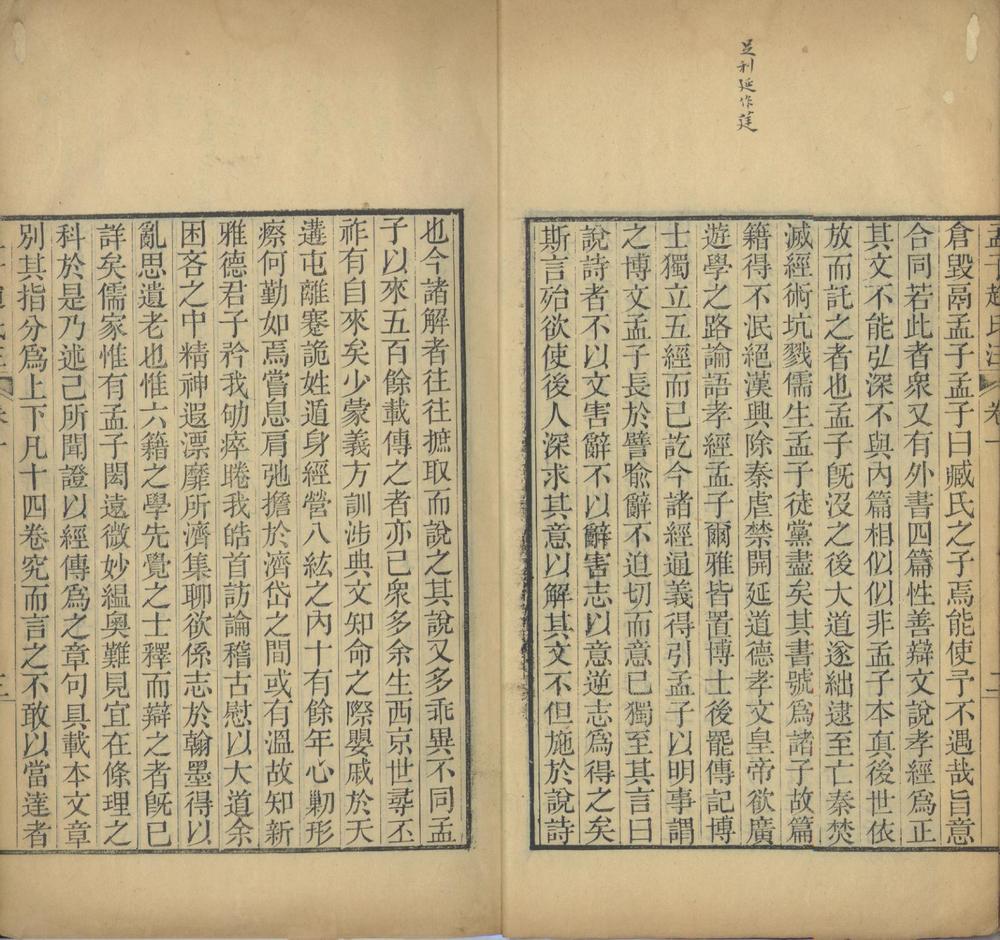 足利延作莛
孟子趙氏注 卷一 二
倉毀鬲孟子孟子曰臧氏之子焉能使予不遇哉旨意
合同若此者衆又有外書四篇性善辯文說孝經爲正
其文不能弘深不與內篇相似似非孟子本眞後世依
放而託之者也孟子旣沒之後大道遂絀逮至亡秦焚
滅經術坑戮儒生孟子徒黨盡矣其書號爲諸子故篇
籍得不泯絕漢興除秦虐禁開延道德孝文皇帝欲廣
遊學之路論語孝經孟子爾雅皆置博士後罷傳記博
士獨立五經而已訖今諸經通義得引孟子以明事謂
之博文孟子長於譬喻辭不迫切而意已獨至其言曰
說詩者不以文害辭不以辭害志以意逆志爲得之矣
斯言殆欲使後人深求其意以解其文不但施於說詩
也今諸解者往往摭取而說之其說又多乖異不同孟
子以來五百餘載傳之者亦已衆多余生西京世尋丕
祚有自來矣少蒙義方訓涉典文知命之際嬰戚於天
遘屯離蹇詭姓遁身經營八紘之內十有餘年心勦形
瘵何勤如焉嘗息肩弛擔於濟岱之間或有溫故知新
雅德君子矜我劬瘁睠我皓首訪論稽古慰以大道余
困吝之中精神遐漂靡所濟集聊欲係志於翰墨得以
亂思遺老也惟六籍之學先覺之士釋而辯之者旣已
詳矣儒家惟有孟子閎遠微妙縕奧難見宜在條理之
科於是乃述己所聞證以經傳爲之章句具載本文章
別其指分爲上下凡十四卷究而言之不敢以當達者